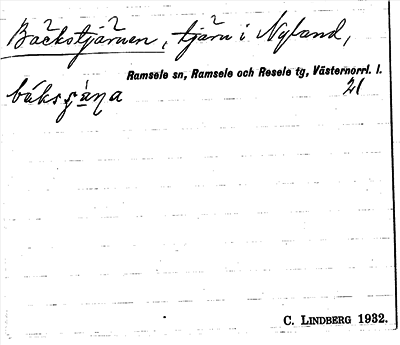 Bäckstjärnen, tjärn i Nyland,
Ramsele sn, Ramsele och Resele tg, Västernorrl. l.
21
C. LINDBERG 1932.